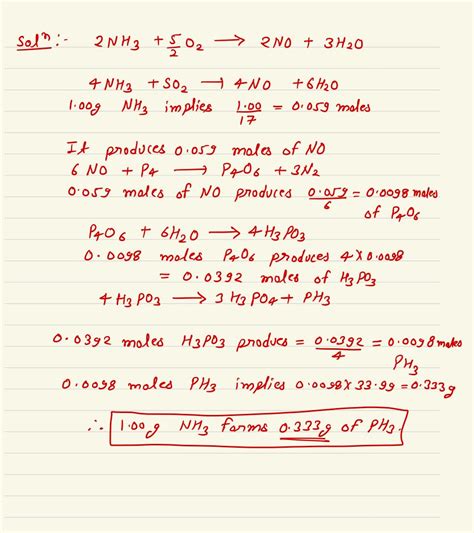 Solⁿ :- 2NH3 + 5/2 O2 → 2NO + 3H2O
4NH3 + SO2 → 4NO + 6H2O
1.00g NH3 implies 1.00/17 = 0.059 moles
It produces 0.059 moles of NO
6 NO + P4 → P4O6 + 3N2
0.059 moles of NO produces 0.059/6 = 0.0098 moles
of P4O6
P4O6 + 6H2O → 4H3PO3
0.0098 moles P4O6 produces 4 x 0.0098
= 0.0392 moles of H3PO3
4 H3PO3 → 3 H3PO4 + PH3
0.0392 moles H3PO3 produces = 0.0392/4 = 0.0098 moles
PH3
0.0098 moles PH3 implies 0.0098 x 33.99 = 0.333g
∴ 1.00g NH3 forms 0.333g of PH3.